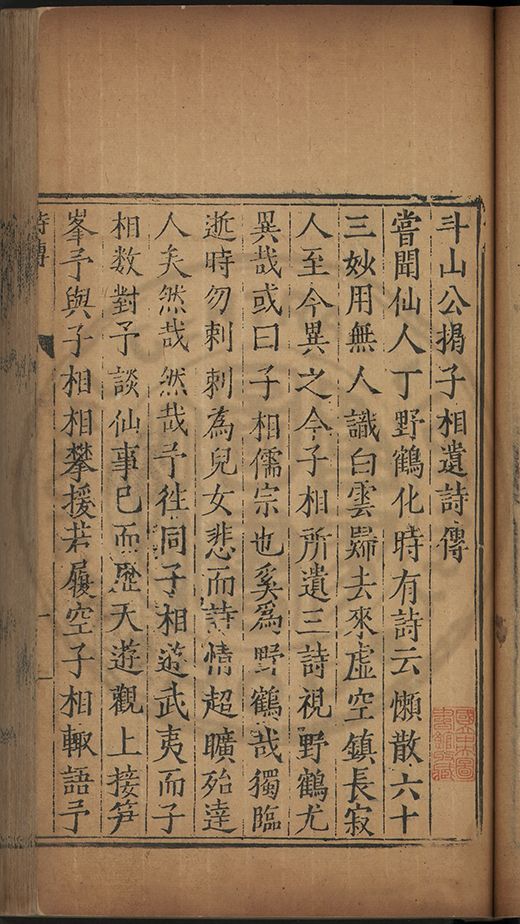 斗山公搨子相遺詩傳
嘗聞仙人丁野鶴化時有詩云懶散六十
三妙用無人識白雲歸去來虛空鎮長寂
人至今異之今子相所遺三詩視野鶴尤
異哉或曰子相儒宗也奚爲野鶴哉獨臨
逝時勿剌剌為兒女悲而詩情超曠殆達
人矣然哉然哉予往同子相遊武夷而子
相数對予談仙事已而歷天遊觀上接笋
峯予與子相相攀援若履空子相輙語予
詩傳